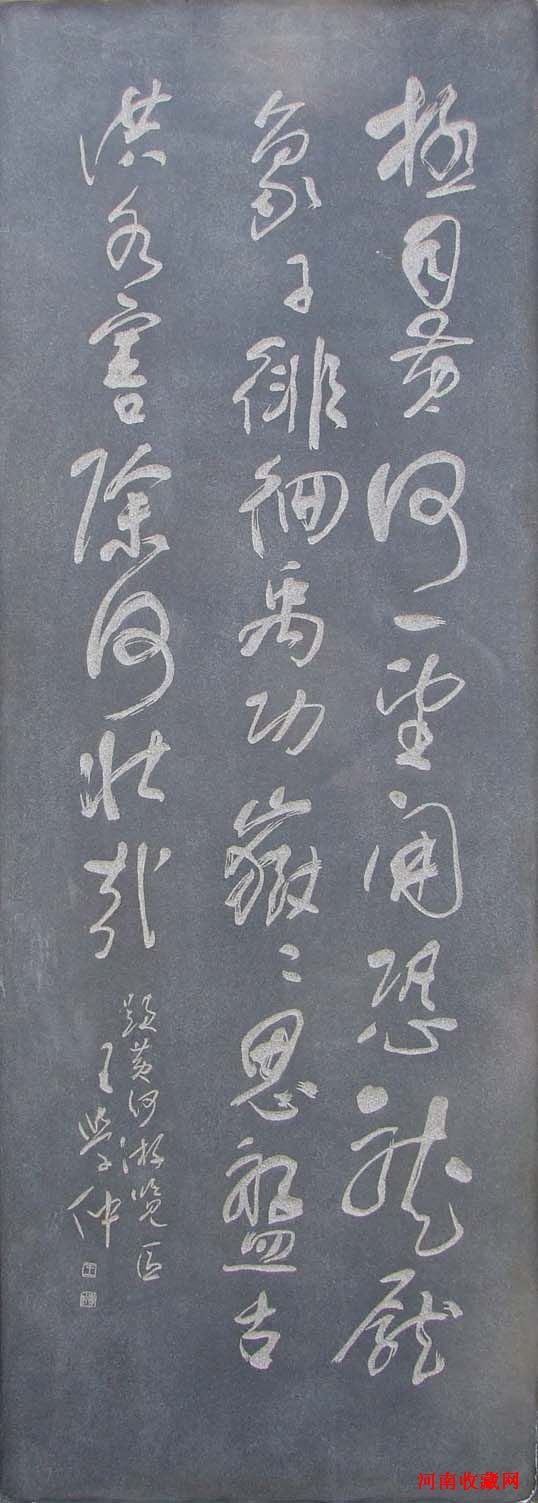 極目黃河一望開恐龍
象徘徊禹功思盤古
洪水害除何壯哉
題黃河游覽區
王學仲
河南收藏网